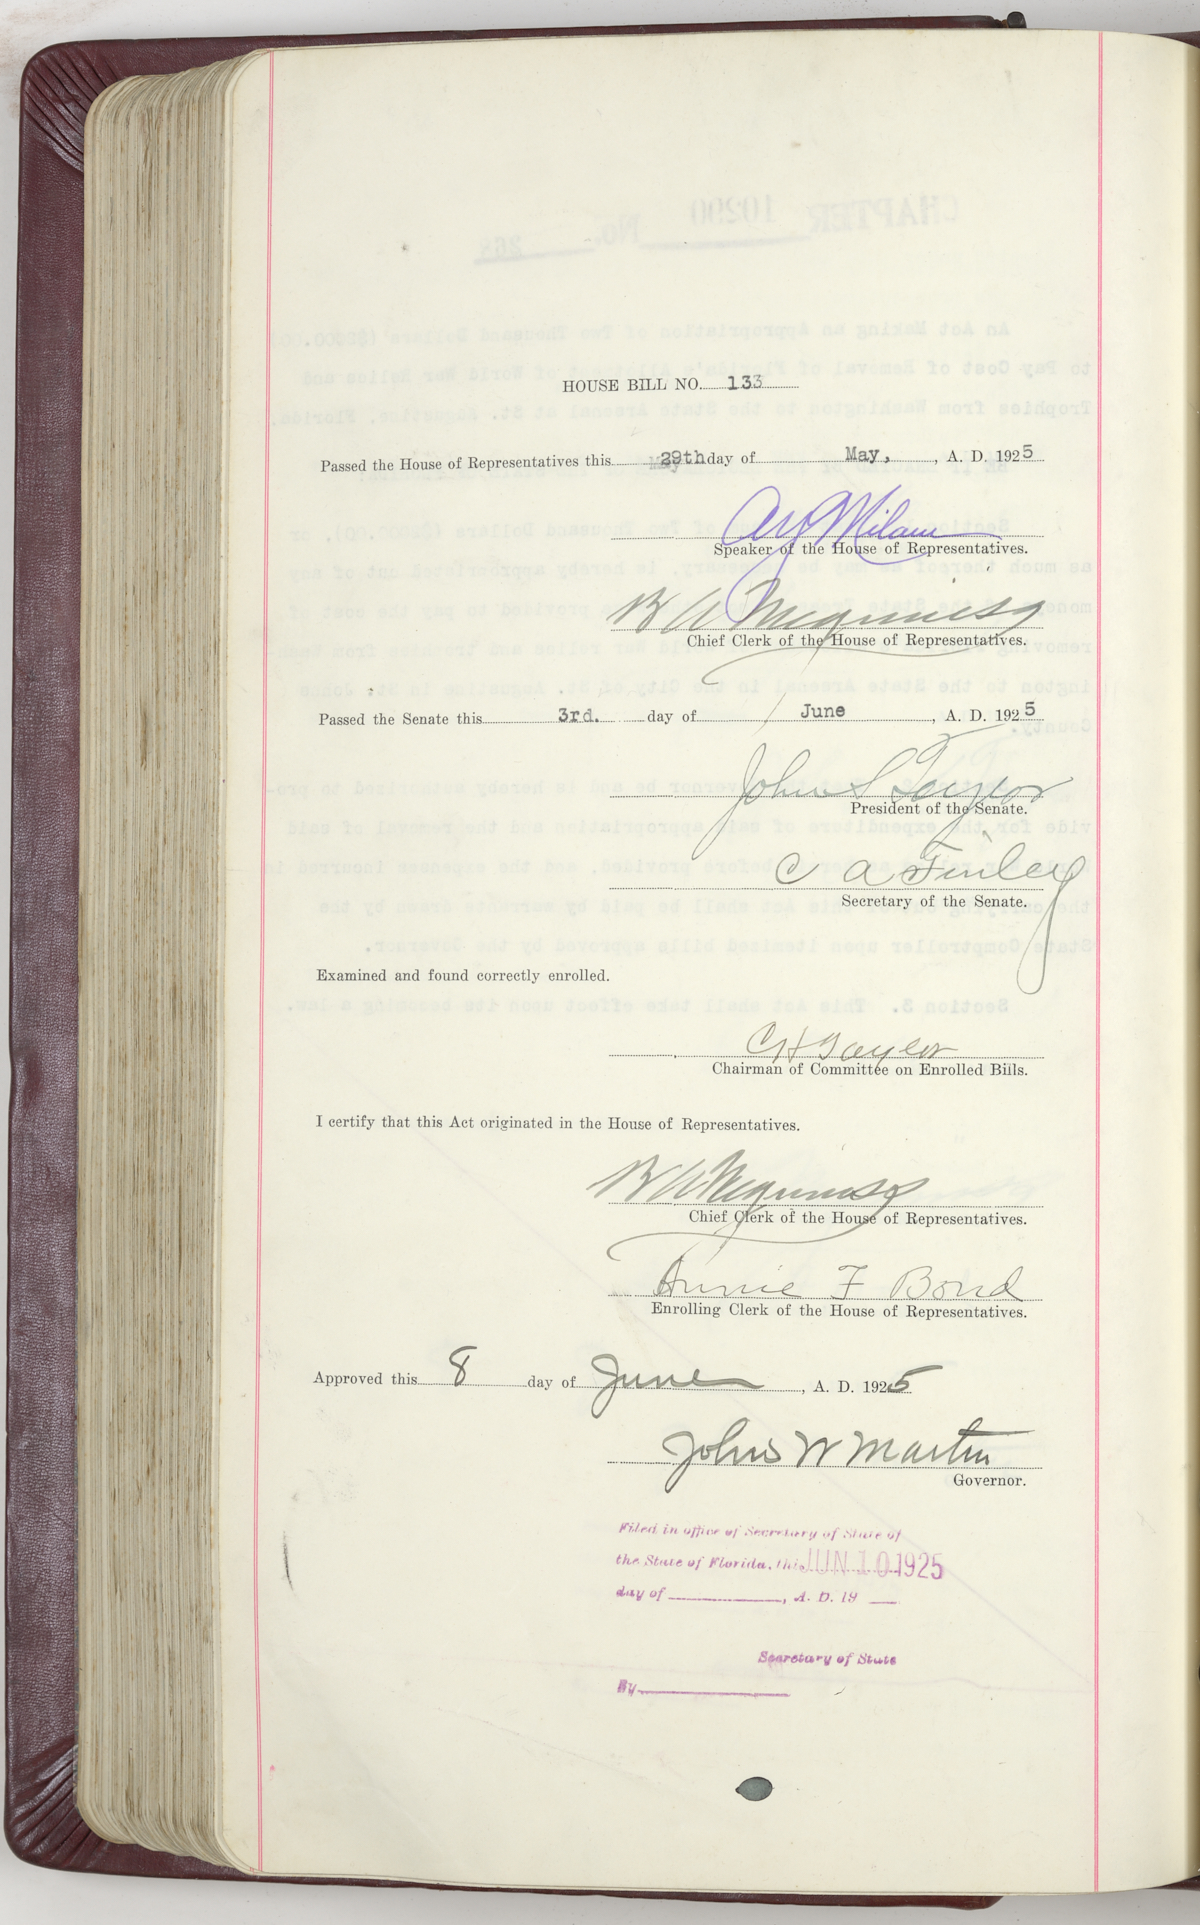 HOUSE BILL NO. 133
Passed the House of Representatives this 29th day of May, , A. D. 1925
A Y Milam
Speaker of the House of Representatives.
B A Meginniss
Chief Clerk of the House of Representatives.
Passed the Senate this 3rd. day of June , A. D. 1925
John S Taylor
President of the Senate.
C A Finley
Secretary of the Senate.
Examined and found correctly enrolled.
C H Taylor
Chairman of Committee on Enrolled Bills.
I certify that this Act originated in the House of Representatives.
B A Meginniss
Chief Clerk of the House of Representatives.
Annie F Bond
Enrolling Clerk of the House of Representatives.
Approved this 8 day of June , A. D. 1925
John W Martin
Governor.
Filed in office of Secretary of State of
the State of Florida, this JUN 10 1925
day of , A. D. 19
Secretary of State
By